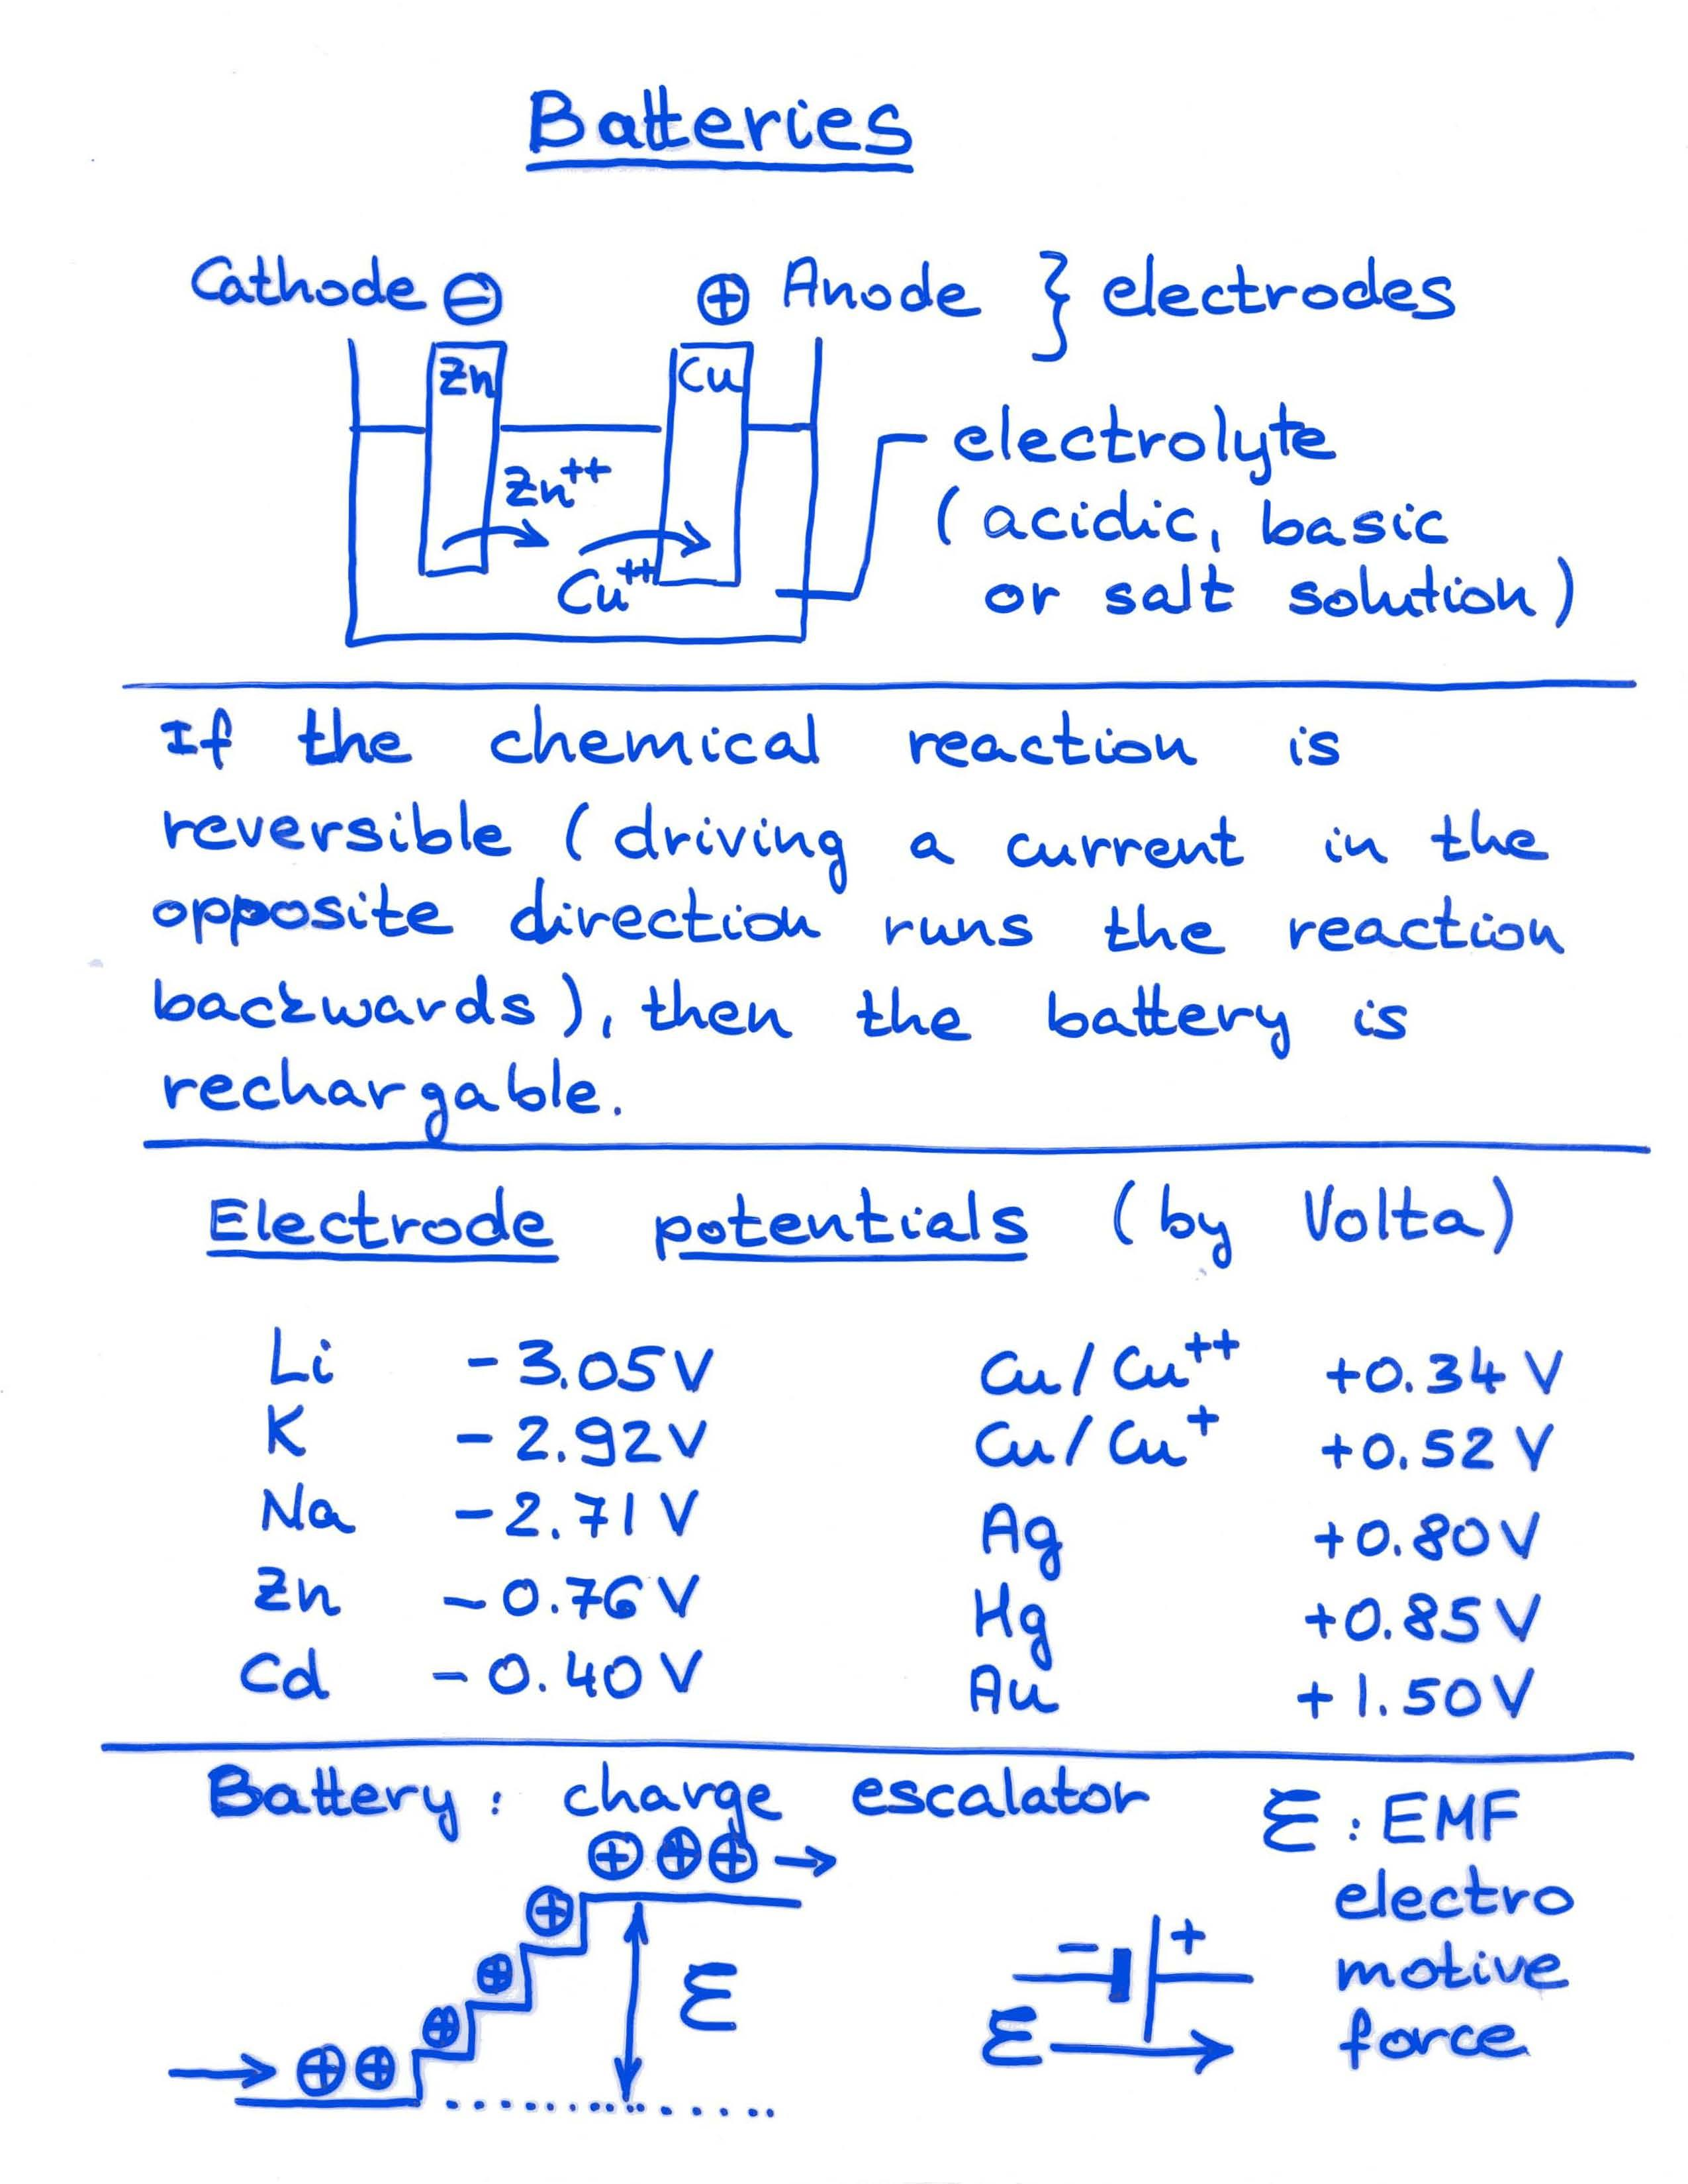 Batteries
Cathode ⊖ ⊕ Anode } electrodes
Zn Cu
electrolyte
Zn⁺⁺
(acidic, basic
Cu⁺⁺
or salt solution)
If the chemical reaction is
reversible (driving a current in the
opposite direction runs the reaction
backwards), then the battery is
rechargable.
Electrode potentials (by Volta)
Li -3.05V Cu/Cu⁺⁺ +0.34V
K -2.92V Cu/Cu⁺ +0.52V
Na -2.71V Ag +0.80V
Zn -0.76V Hg +0.85V
Cd -0.40V Au +1.50V
Battery: charge escalator ℰ: EMF
⊕⊕⊕ →
electro
⊕
- +
⊕
ℰ
motive
⊕
ℰ
force
→ ⊕⊕